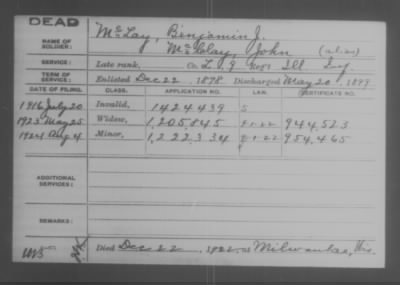 DEAD
NAME OF SOLDIER: McLay, Benjamin J.
McClay, John (alias)
SERVICE: Late rank, Co. L. 9 Reg't Ill Inf
TERM OF SERVICE: Enlisted Dec 22, 1898 Discharged May 20, 1899
DATE OF FILING. CLASS. APPLICATION NO. LAW. CERTIFICATE NO.
1916 July 20 Invalid, 1424439 S
1923 May 25 Widow, 1,205,845 944,523
1924 Aug 4 Minor, 1,222,334 954,465
ADDITIONAL SERVICES:
REMARKS:
Died Dec 22, 1922, at Milwaukee, Wis.